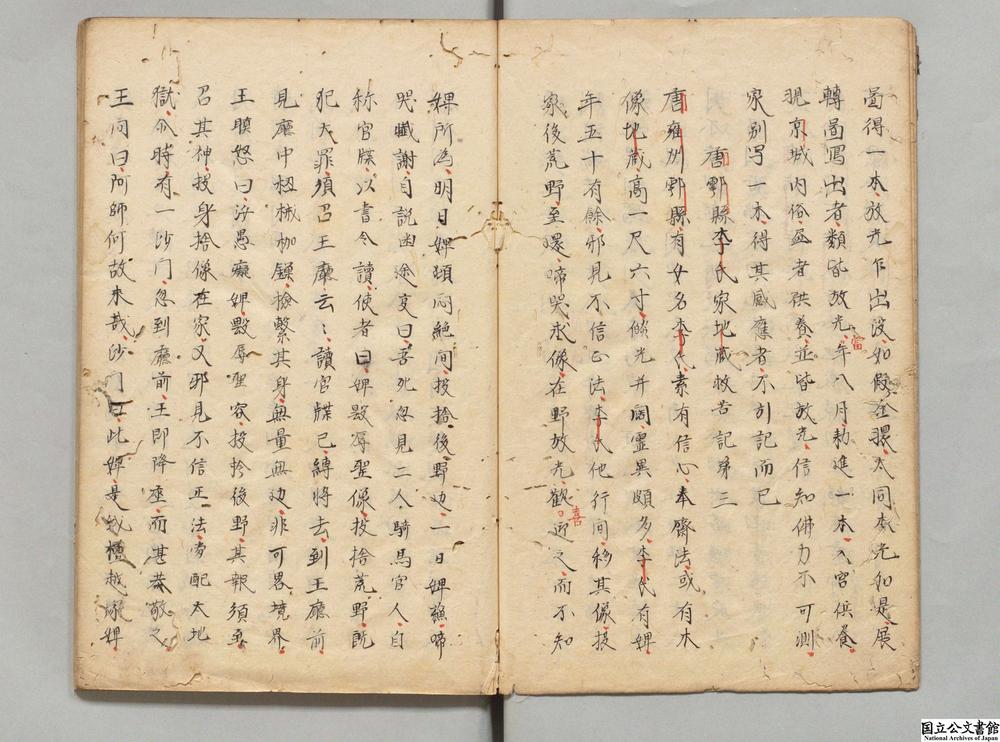 啚得一本放光乍出没如假在環太同本光如是展
轉啚冩出者類皆放光當年八月勅進一本入宮供養
現京城内俗盃者供養並皆放光信知佛力不可測
家別写一本得其感應者不別記而已
唐鄠縣李氏家地蔵救苦記第三
唐雍州鄠縣有女名李氏素有信心奉齋法或有木
像地蔵高一尺六寸候光并圓霊異頗多李氏有婢
年五十有餘邪見不信正法李氏他行間移其像投
家後荒野至還啼哭求像在野放光歓喜迎之而不知
婢所為明日婢頓悶絶間投捨後野边一日婢穌啼
哭懺謝自説幽途変曰吾死忽見二人騎馬官人自
称官牒以書令讀使者曰婢毀辱聖像投捨荒野既
犯大罪須召王廳云々讀官牒已縛将去到王廳前
見廳中杻械枷鏁撿繫其身無量無边非可畧境界
王瞋怒曰汝愚癡婢毀辱聖容投捨後野其報須至
召其神投身捨像在家又邪見不信正法當配大地
獄尒時有一沙门忽到廳前王即降座而甚恭敬之
王问曰阿師何故来哉沙门曰此婢是我檀越家婢
国立公文書館
National Archives of Japan